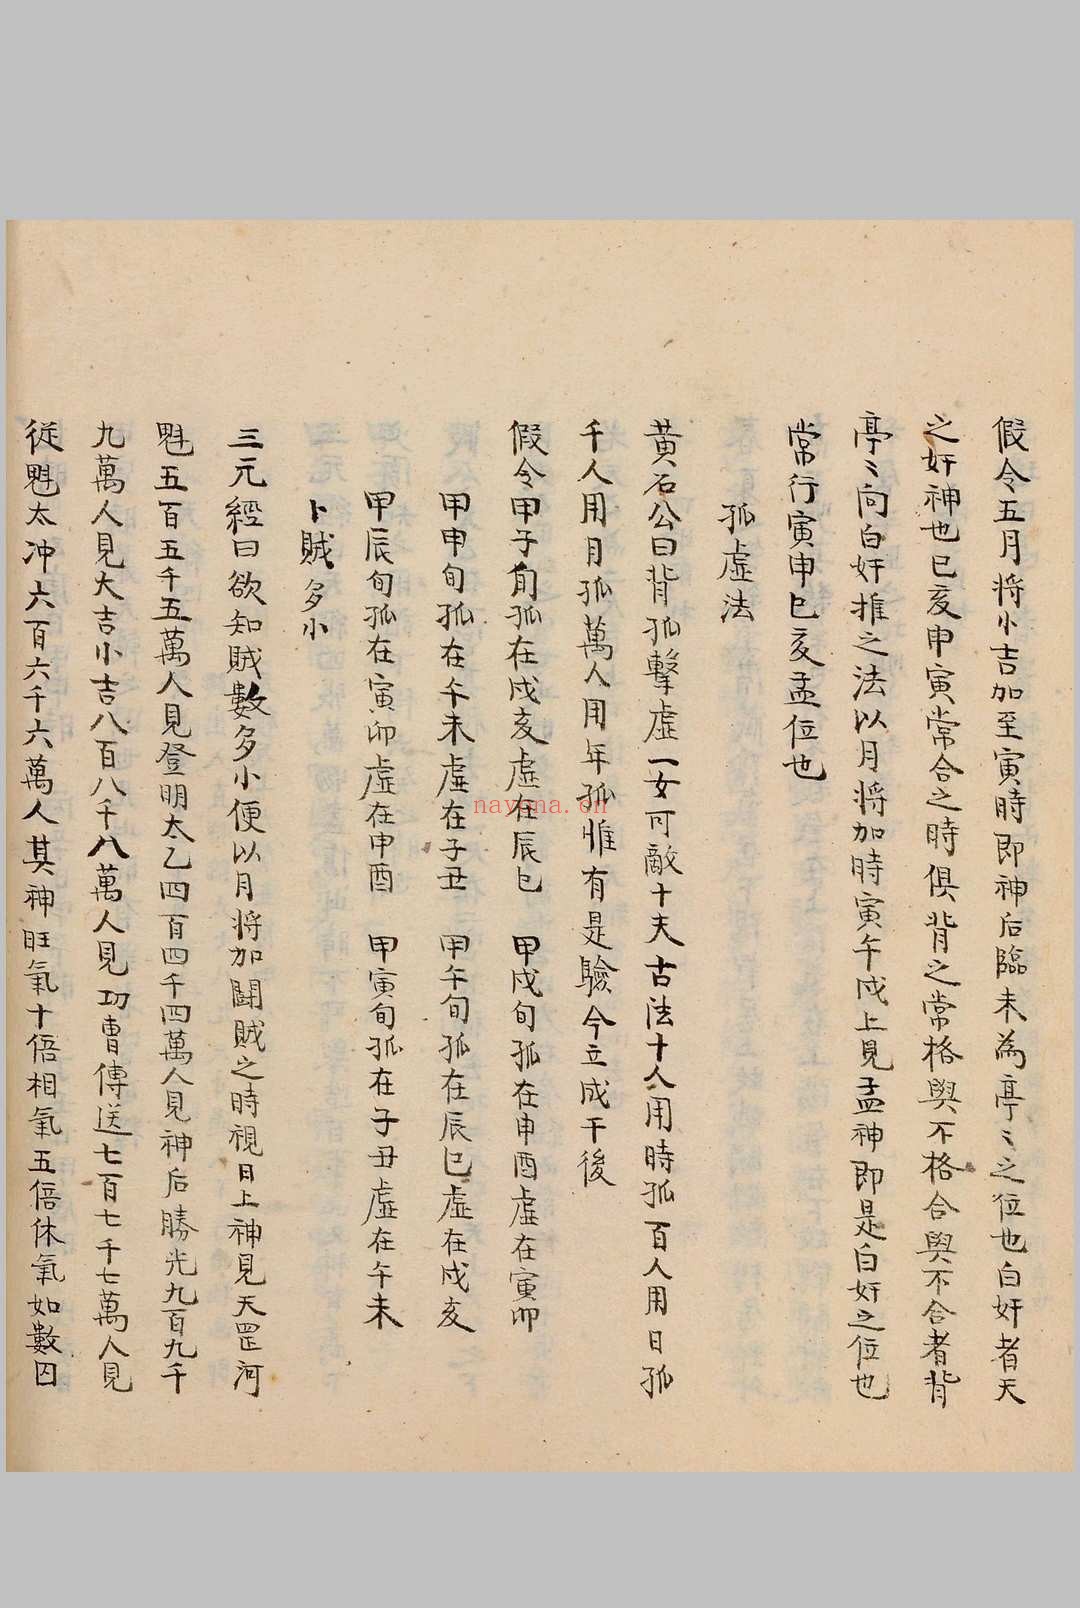 假令五月將小吉加至寅時即神后臨未為亭〻之位也白奸者天
之奸神也巳亥申寅常合之時俱背之常格與不格合與不合者背
亭〻向白奸推之法以月將加時寅午戌上見孟神即是白奸之位也
常行寅申巳亥孟位也
孤虛法
黃石公曰背孤擊虛一女可敵十夫古法十人用時孤百人用日孤
千人用月孤萬人用年孤惟有是驗今立成于後
假令甲子旬孤在戌亥虛在辰巳 甲戌旬孤在申酉虛在寅卯
甲申旬孤在午未虛在子丑 甲午旬孤在辰巳虛在戌亥
甲辰旬孤在寅卯虛在申酉 甲寅旬孤在子丑虛在午未
卜賊多小
三元經曰欲知賊數多小便以月將加鬪賊之時視日上神見天罡河
魁五百五千五萬人見登明太乙四百四千四萬人見神后勝光九百九千
九萬人見大吉小吉八百八千八萬人見功曹傳送七百七千七萬人見
從魁太冲六百六千六萬人其神旺氣十倍相氣五倍休氣如數囚
nayona.cn